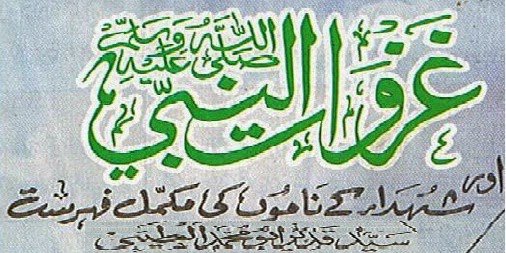 غزوات النبی صلی اللہ علیہ وسلم
اور شہداء کے ناموں کی مکمل فہرست
سید قدیر ابو محمد الطیبی